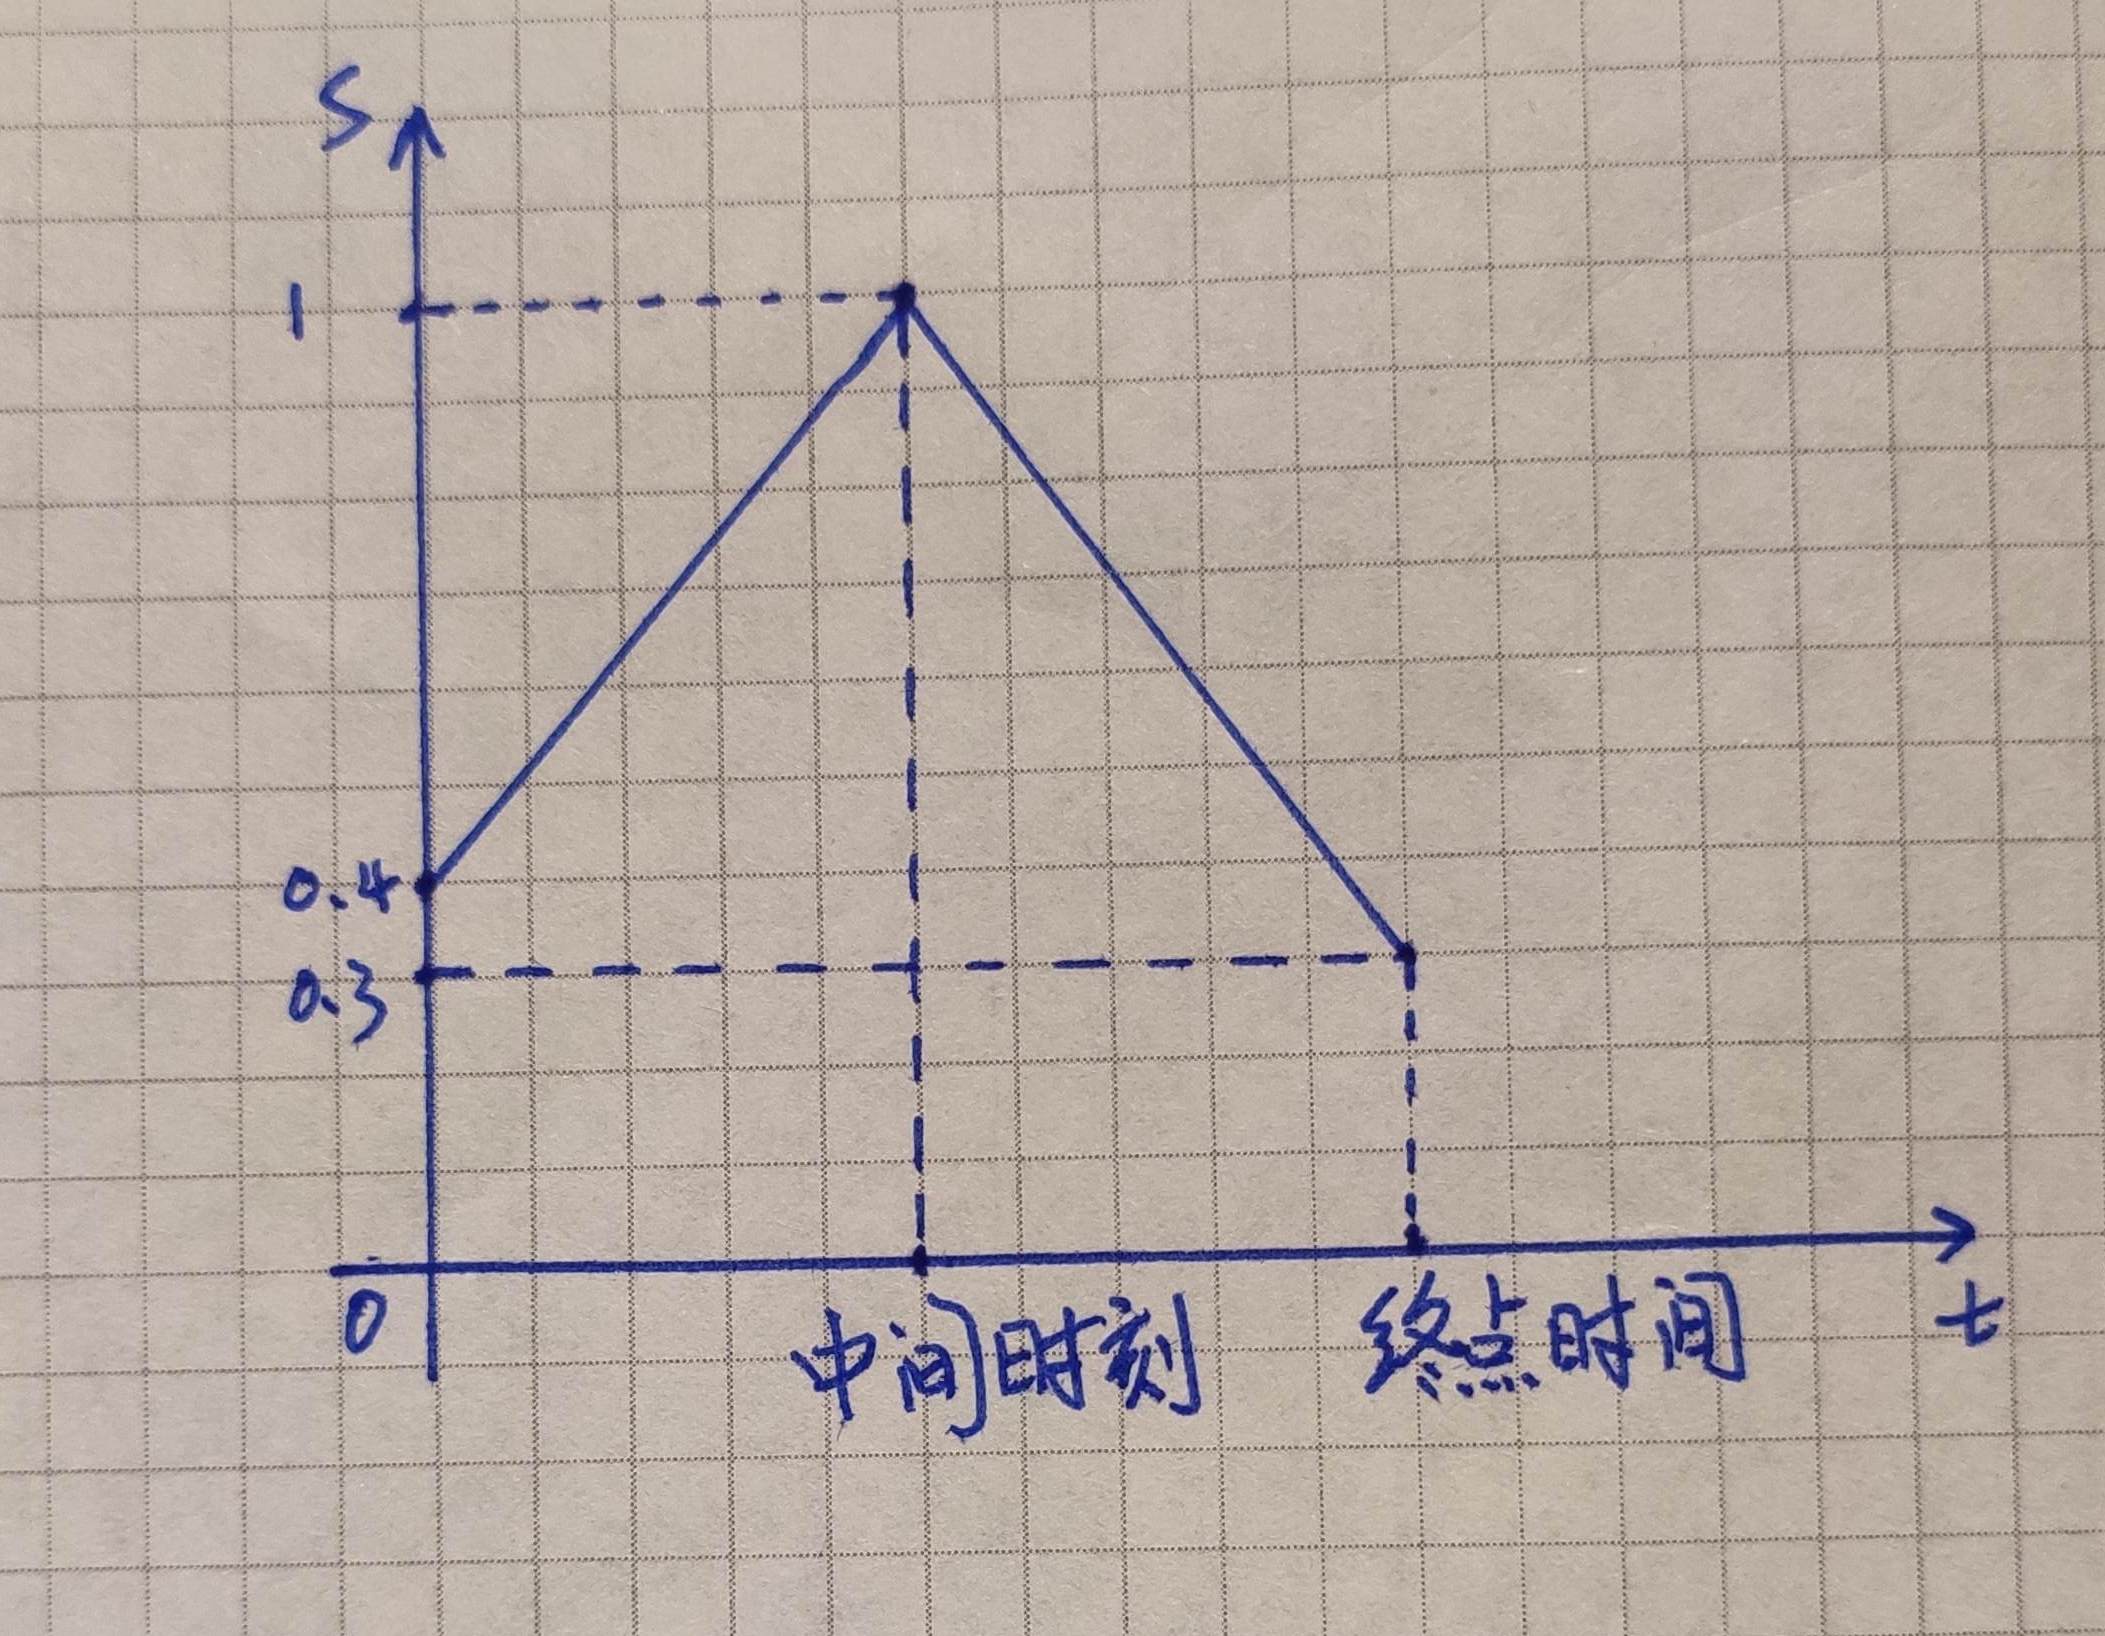 S
1
0.4
0.3
0
中间时刻
终点时间
t